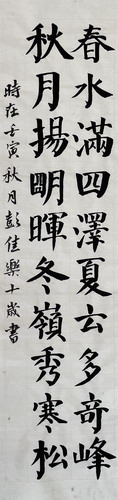 春水滿四澤夏云多奇峰
秋月揚明暉冬嶺秀寒松
時在壬寅秋月彭佳樂十歲書